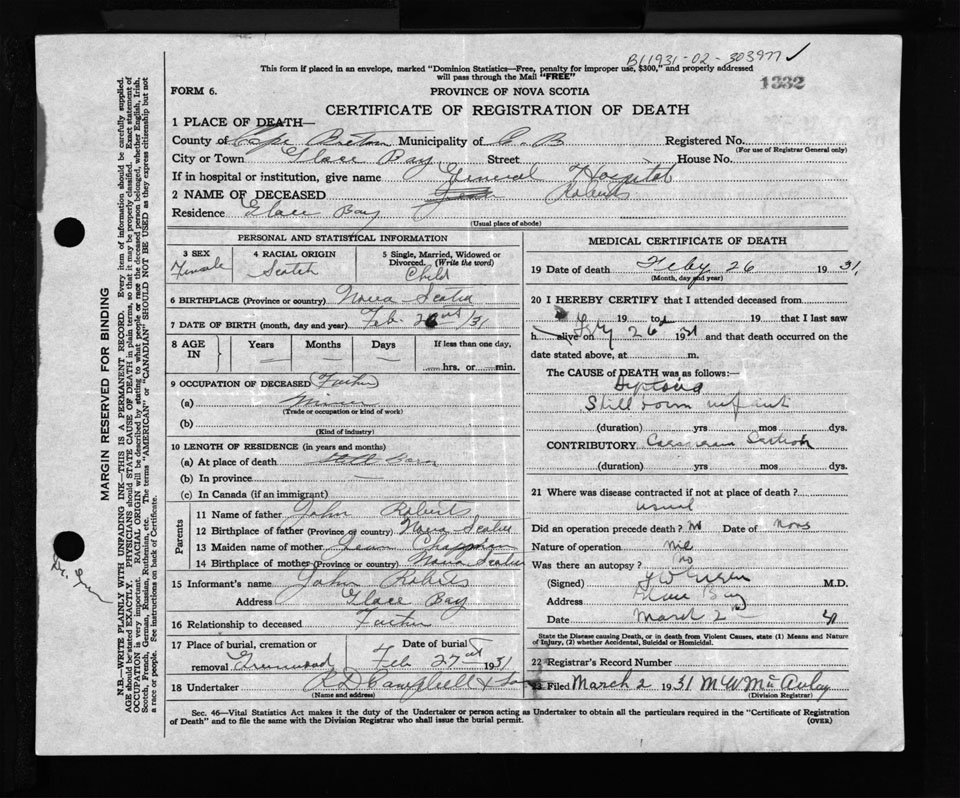 B11931-02-303977 ✓
This form if placed in an envelope, marked "Dominion Statistics—Free, penalty for improper use, $300," and properly addressed
will pass through the Mail "FREE"
1332
FORM 6.
PROVINCE OF NOVA SCOTIA
CERTIFICATE OF REGISTRATION OF DEATH
1 PLACE OF DEATH—
County of Cape Breton Municipality of C.B Registered No.
(For use of Registrar General only)
City or Town Glace Bay Street House No.
If in hospital or institution, give name General Hospital
2 NAME OF DECEASED Roberts
Residence Glace Bay
(Usual place of abode)
PERSONAL AND STATISTICAL INFORMATION
3 SEX Female
4 RACIAL ORIGIN Scotch
5 Single, Married, Widowed or Divorced. (Write the word) Child
6 BIRTHPLACE (Province or country) Nova Scotia
7 DATE OF BIRTH (month, day and year) Feb 26 /31
8 AGE IN Years Months Days If less than one day, hrs. or min.
9 OCCUPATION OF DECEASED Father
(a) Miner
(Trade or occupation or kind of work)
(b)
(Kind of industry)
10 LENGTH OF RESIDENCE (in years and months)
(a) At place of death Still Born
(b) In province —
(c) In Canada (if an immigrant)
Parents
11 Name of father John Roberts
12 Birthplace of father (Province or country) Nova Scotia
13 Maiden name of mother
14 Birthplace of mother (Province or country) Nova Scotia
15 Informant's name John Roberts
Address Glace Bay
16 Relationship to deceased Father
17 Place of burial, cremation or removal Greenwood
Date of burial Feb 27 1931
18 Undertaker Campbell & Son
(Name and address)
MEDICAL CERTIFICATE OF DEATH
19 Date of death Feby 26 1931
(Month, day and year)
20 I HEREBY CERTIFY that I attended deceased from
19 to 19 that I last saw
h alive on Feby 26 19 and that death occurred on the
date stated above, at m.
The CAUSE of DEATH was as follows:—
Still born infant
(duration) yrs mos dys.
CONTRIBUTORY Caesarean Section
(duration) yrs mos dys.
21 Where was disease contracted if not at place of death?
Did an operation precede death? Date of
Nature of operation nil
Was there an autopsy? No
(Signed) M.D.
Address Glace Bay
Date March 2
State the Disease causing Death, or in death from Violent Causes, state (1) Means and Nature of Injury, (2) whether Accidental, Suicidal or Homicidal.
22 Registrar's Record Number
23 Filed March 2 1931 M W McAulay
(Division Registrar)
Sec. 46—Vital Statistics Act makes it the duty of the Undertaker or person acting as Undertaker to obtain all the particulars required in the "Certificate of Registration
of Death" and to file the same with the Division Registrar who shall issue the burial permit.
(OVER)
MARGIN RESERVED FOR BINDING
N.B.—WRITE PLAINLY WITH UNFADING INK—THIS IS A PERMANENT RECORD. Every item of information should be carefully supplied.
AGE should be stated EXACTLY. PHYSICIANS should STATE CAUSE OF DEATH in plain terms, so that it may be properly classified. Exact statement of
OCCUPATION is very important. RACIAL ORIGIN will be described by stating to what people or race the deceased person belonged, whether English, Irish,
Scotch, French, German, Russian, Ruthenian, etc. The terms "AMERICAN" or "CANADIAN" SHOULD NOT BE USED as they express citizenship but not
a race or people. See instructions on back of Certificate.